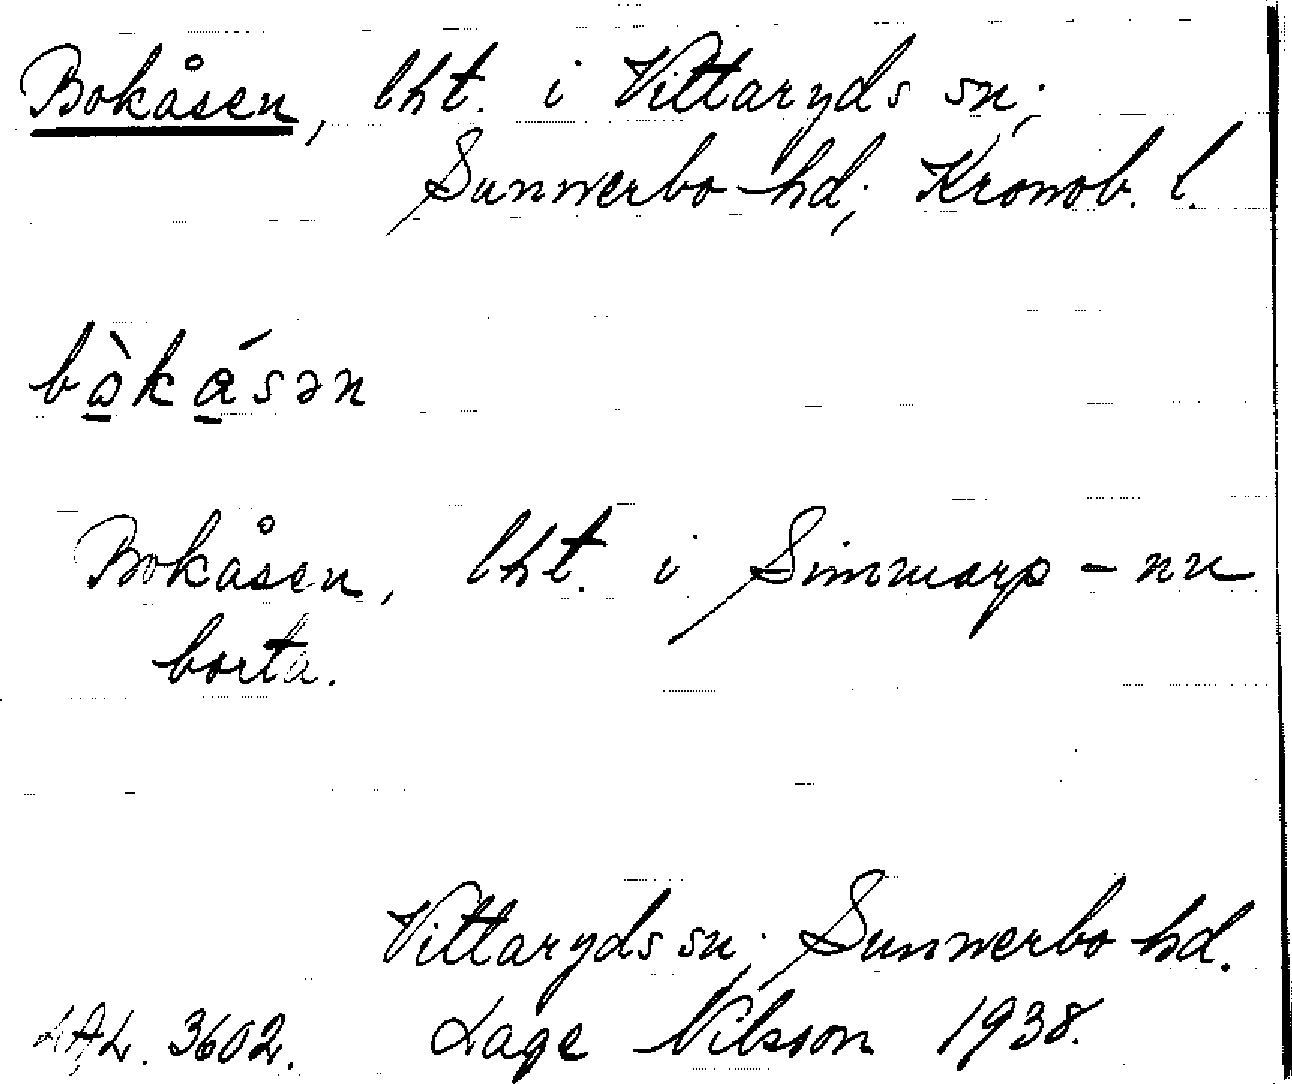 Bokåsen, lht. i Vittaryds sn;
Sunnerbo hd; Kronob. l.
bò̲ká̲sən
Bokåsen, lht. i Simmarp - nu
borta.
Vittaryds sn; Sunnerbo hd.
LAL. 3602. Lage Nilsson 1938.